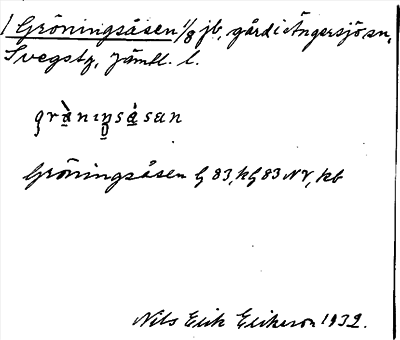 1 Gröningsåsen 1/8 jb, gård i Ängersjö sn,
Svegstg, Jämtl. l.
grànıŋsásan
Gröningsåsen G 83, kG 83 NV, kb
Nils Erik Erikson 1932.